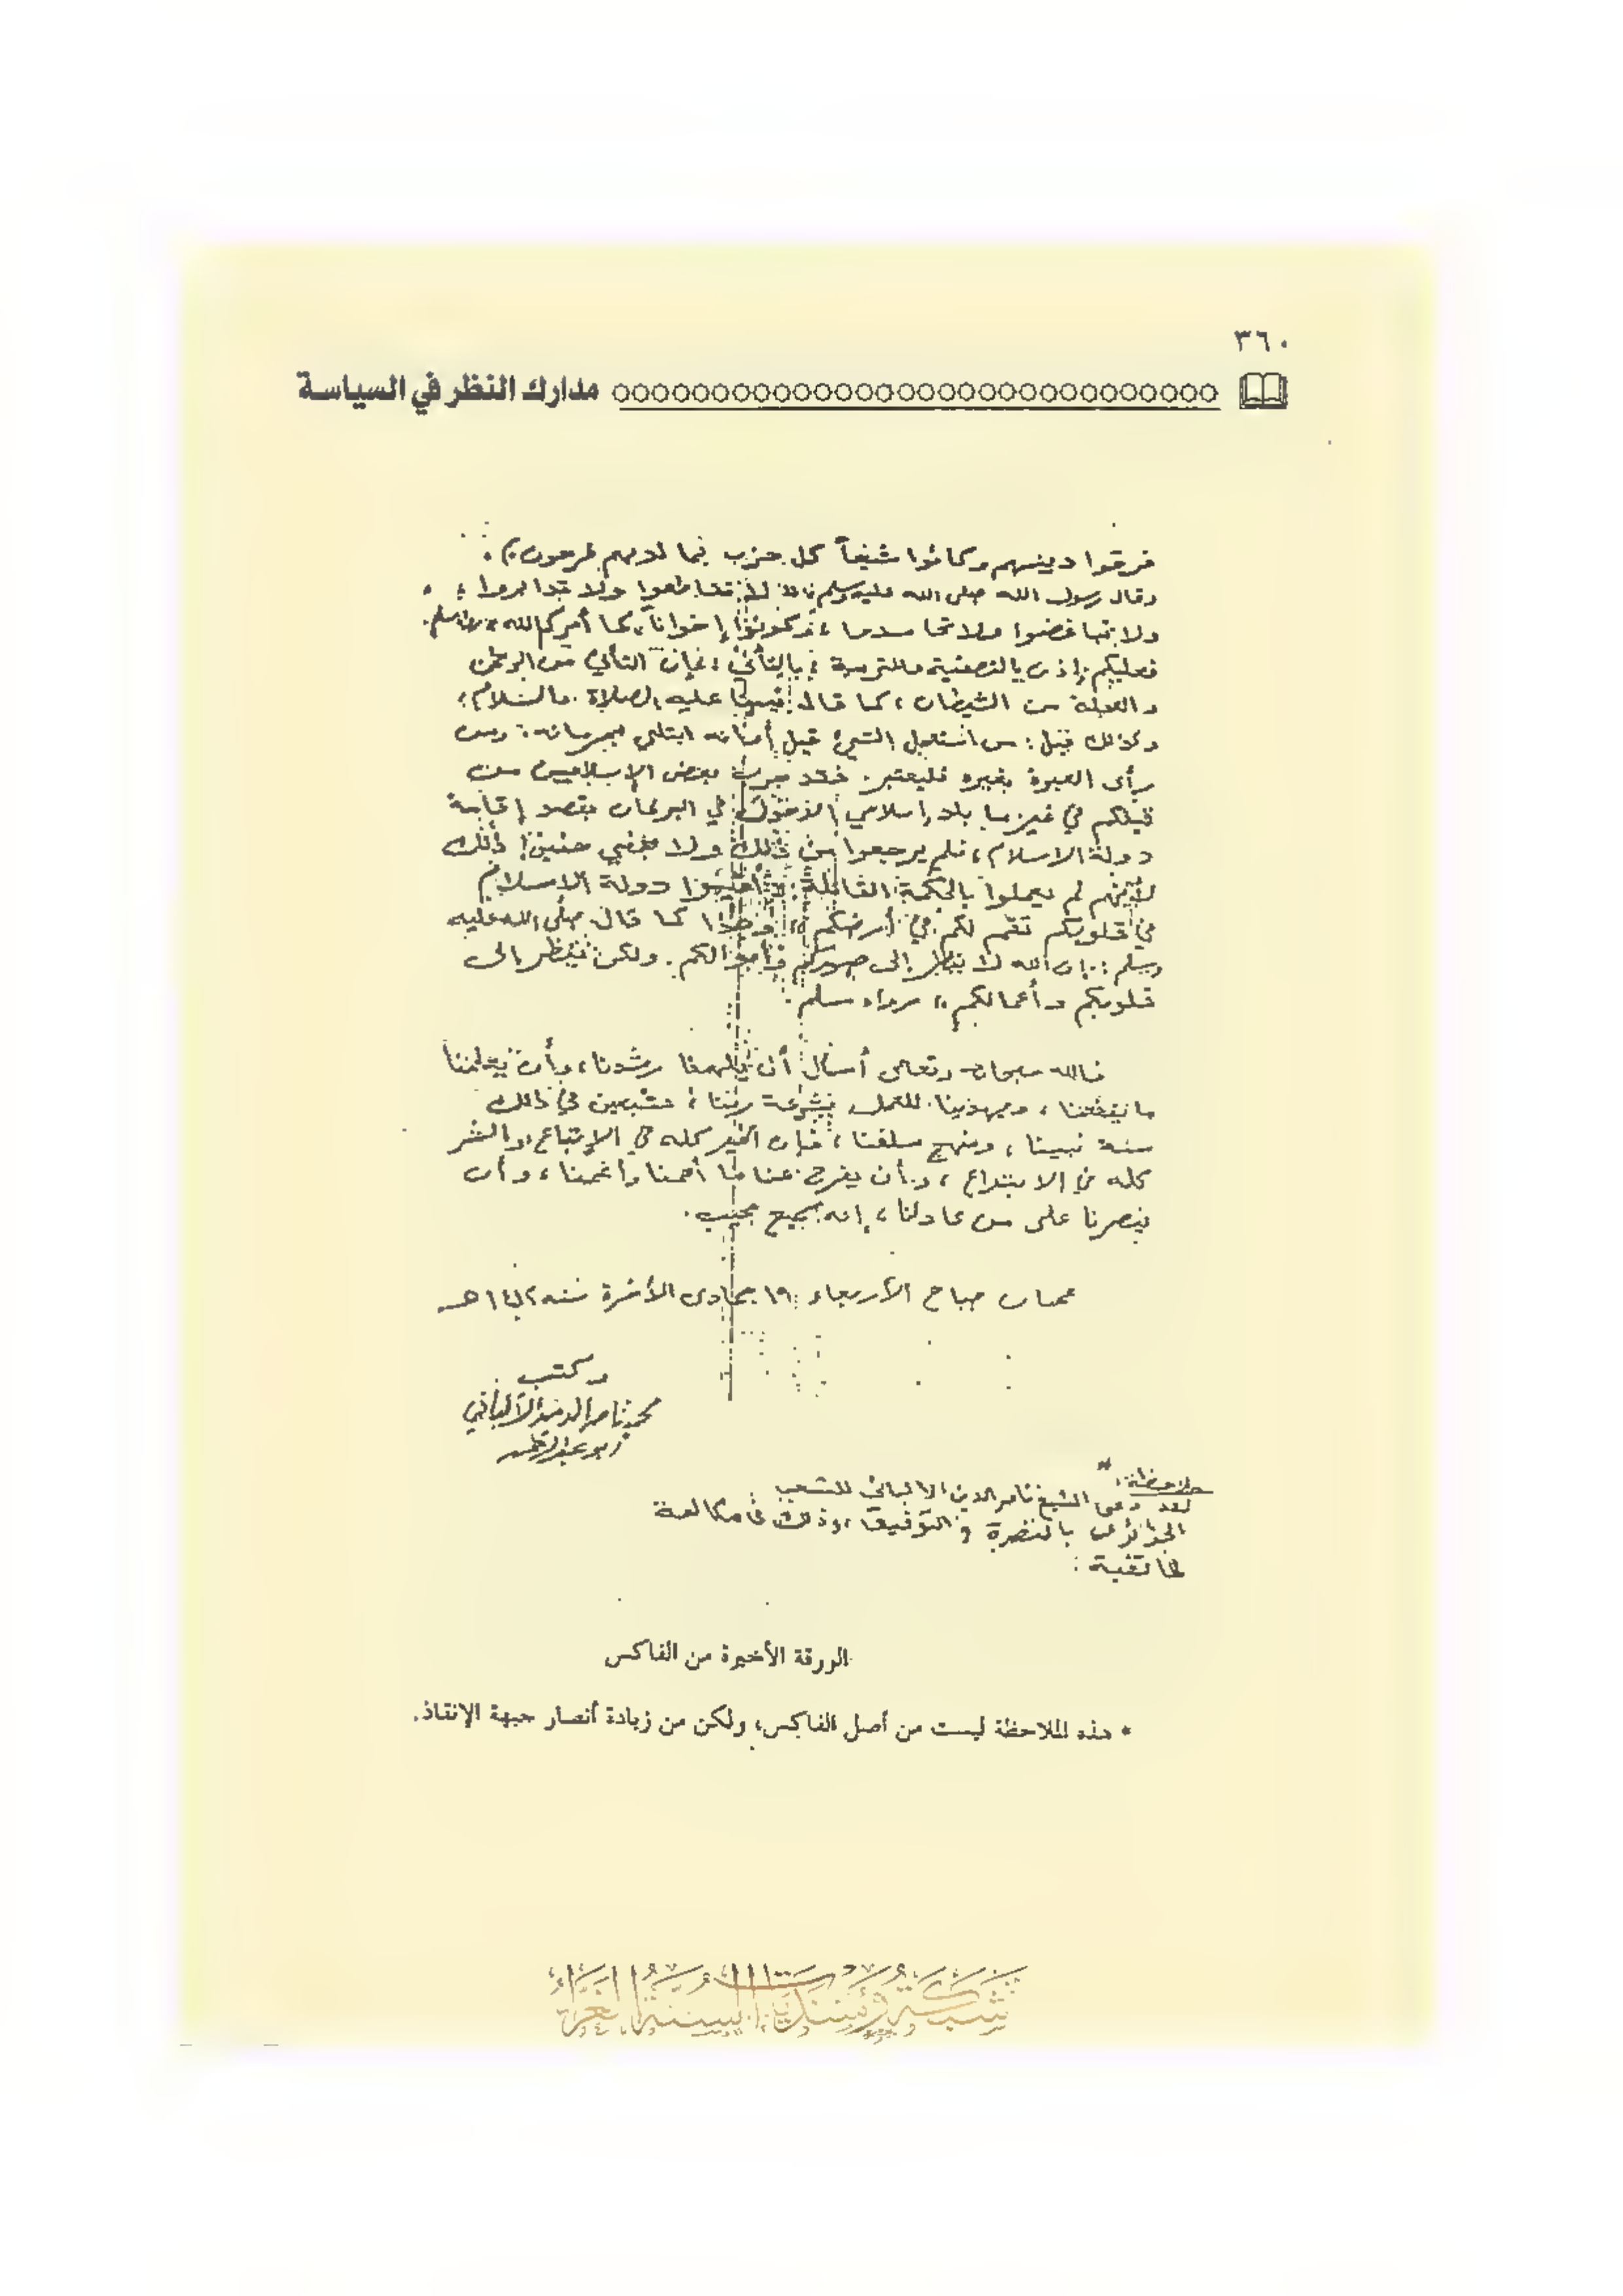 ٣٦٠
مدارك النظر في السياسة
فرقوا دينهم وكانوا شيعاً كل حزب بما لديهم فرحون﴾.
وقال رسول الله صلى الله عليه وسلم: «لا تقاطعوا ولا تدابروا،
ولا تباغضوا ولا تحاسدوا، وكونوا إخواناً كما أمركم الله» رواه مسلم.
فعليكم إذن بالتصفية والتربية، بالتأني، فإن التأني من الرحمن
والعجلة من الشيطان، كما قال نبينا عليه الصلاة والسلام،
وكذلك قيل: من استعجل الشيء قبل أوانه ابتلي بحرمانه، ومن
رأى العبرة بغيره فليعتبر. فقد جرب بعض الإسلاميين من
قبلكم في غير ما بلد إسلامي الدخول في البرلمان بقصد إقامة
دولة الإسلام، فلم يرجعوا من ذلك ولا بخفي حنين! ذلك
لأنهم لم يعملوا بالحكمة القائلة: «أقيموا دولة الإسلام
في قلوبكم تقم لكم في أرضكم»، وهذا كما قال صلى الله عليه
وسلم: «إن الله لا ينظر إلى صوركم وأموالكم، ولكن ينظر إلى
قلوبكم وأعمالكم» رواه مسلم.
فالله سبحانه وتعالى أسأل أن يلهمنا رشدنا، وأن يعلمنا
ما ينفعنا، ويهدينا للعمل بشرعة ربنا، متبعين في ذلك
سنة نبينا، ومنهج سلفنا، فإن الخير كله في الإتباع، والشر
كله في الابتداع، وأن يفرج عنا ما أهمنا وأغمنا، وأن
ينصرنا على من عادانا، إنه سميع مجيب.
عمان صباح الأربعاء ١٩ جمادى الآخرة سنة ١٤١٢هـ
وكتب
محمد ناصر الدين الألباني
أبو عبد الرحمن
ملاحظة: *
لقد دعى الشيخ ناصر الدين الألباني للشعب
الجزائري بالنصرة و التوفيق، وذلك في مكالمة
هاتفية:
الورقة الأخيرة من الفاكس
* هذه الملاحظة ليست من أصل الفاكس، ولكن من زيادة أنصار جبهة الإنقاذ.